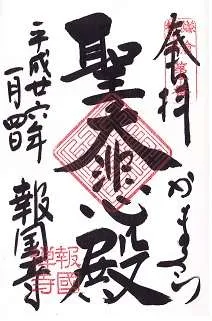 奉拝
かまくら
聖大悲殿
平成廿六年
一月四日
報国寺
報國
禅寺